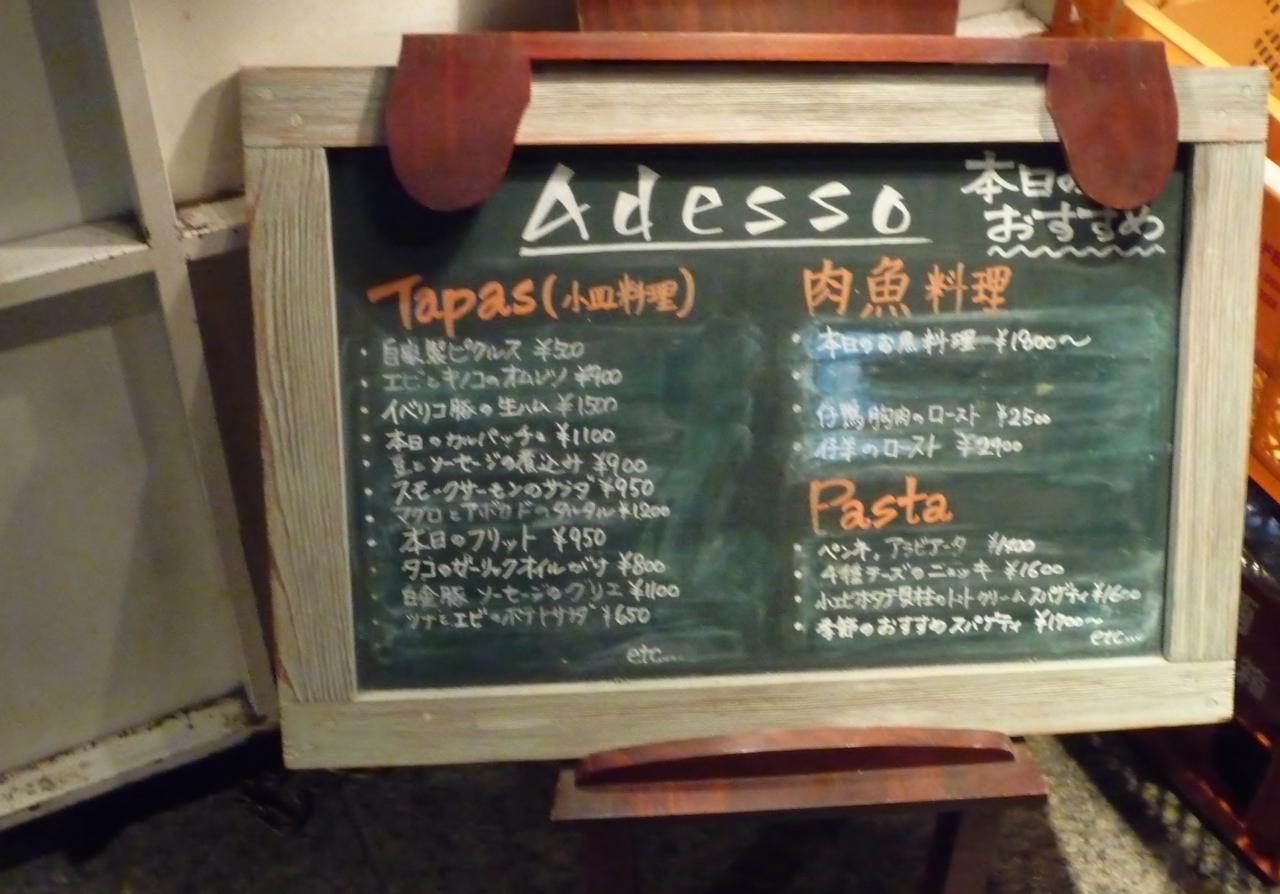 Adesso
本日の
おすすめ
Tapas(小皿料理)
・自家製ピクルス ¥500
・エビとキノコのオムレツ ¥900
・イベリコ豚の生ハム ¥1500
・本日のカルパッチョ ¥1100
・豆とソーセージの煮込み ¥900
・スモークサーモンのサラダ ¥950
・マグロとアボカドのタルタル ¥1200
・本日のフリット ¥950
・タコのガーリックオイルがけ ¥800
・白金豚 ソーセージのグリエ ¥1100
・ツナとエビのポテトサラダ ¥650
etc...
肉・魚料理
・本日のお魚料理 ¥1800〜
・
・仔鴨胸肉のロースト ¥2500
・仔羊のロースト ¥2900
Pasta
・ペンネ・アラビアータ ¥1400
・4種チーズのニョッキ ¥1600
・小エビホタテ貝柱のトマトクリームスパゲティ ¥1600
・季節のおすすめスパゲティ ¥1700〜
etc...